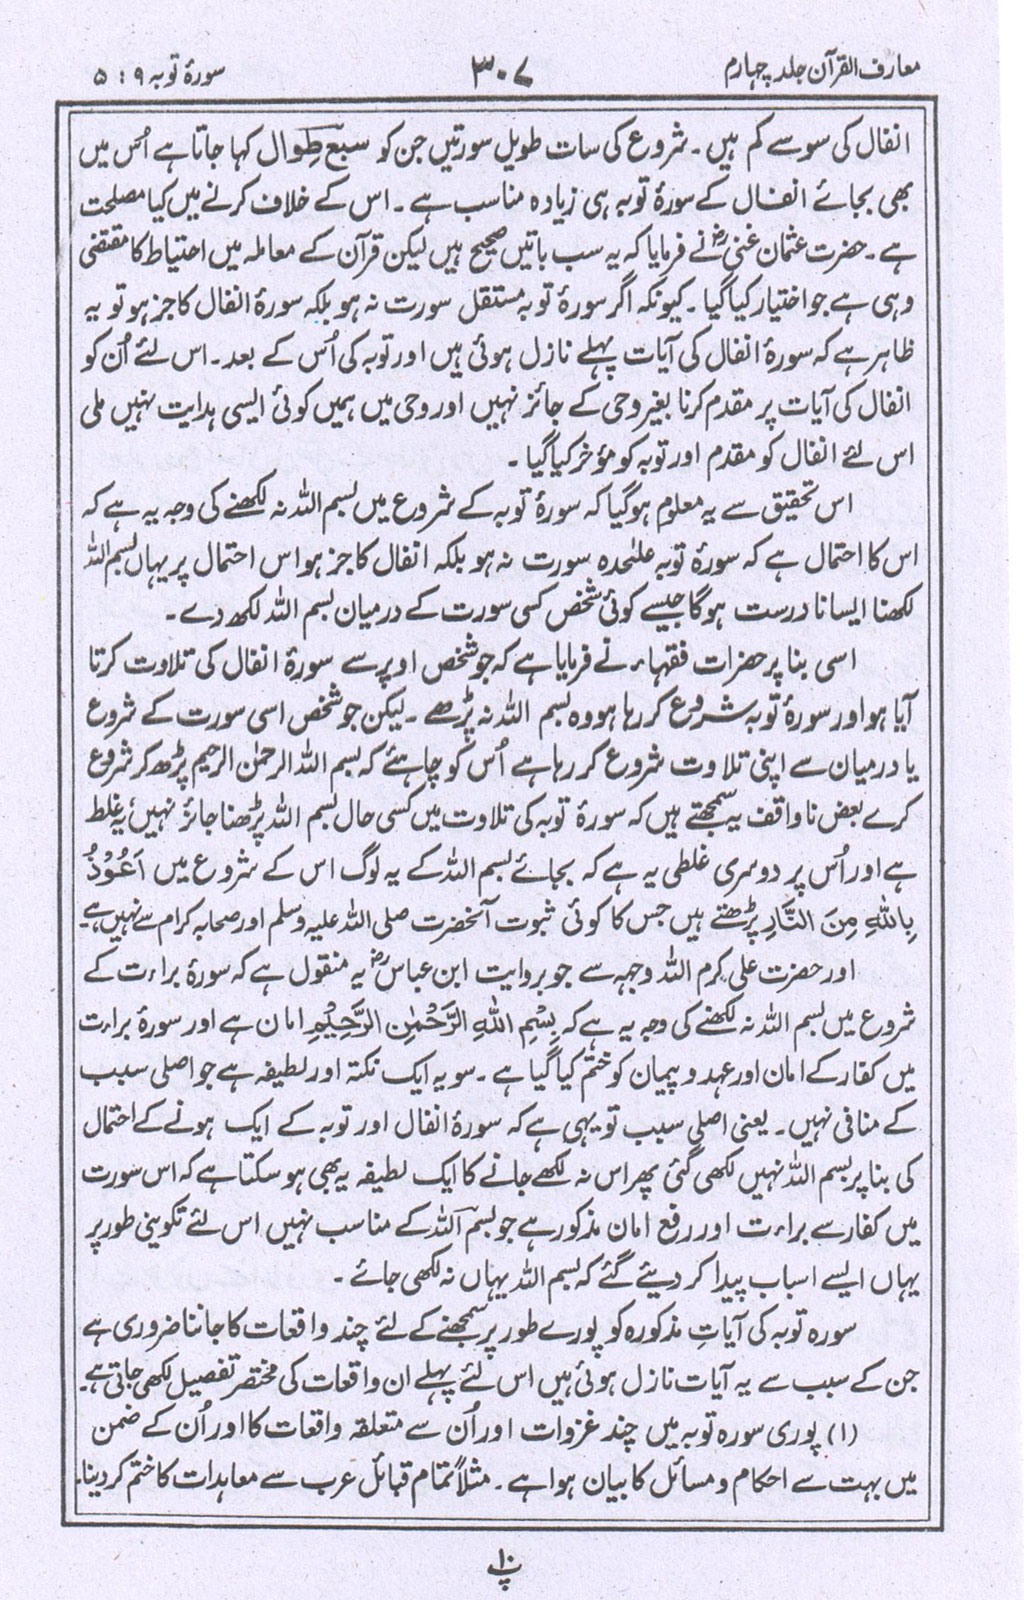 معارف القرآن جلد چہارم
۳۰۷
سورۂ توبہ ۹ : ۵
انفال کی سو سے کم ہیں۔ شروع کی سات طویل سورتیں جن کو سبع طِوال کہا جاتا ہے اُس میں
بھی بجائے انفال کے سورۂ توبہ ہی زیادہ مناسب ہے۔ اس کے خلاف کرنے میں کیا مصلحت
ہے۔ حضرت عثمان غنیؓ نے فرمایا کہ یہ سب باتیں صحیح ہیں لیکن قرآن کے معاملہ میں احتیاط کا مقتضی
وہی ہے جو اختیار کیا گیا۔ کیونکہ اگر سورۂ توبہ مستقل سورت نہ ہو بلکہ سورۂ انفال کا جز ہو تو یہ
ظاہر ہے کہ سورۂ انفال کی آیات پہلے نازل ہوئی ہیں اور توبہ کی اُس کے بعد۔ اس لئے اُن کو
انفال کی آیات پر مقدم کرنا بغیر وحی کے جائز نہیں اور وحی میں ہمیں کوئی ایسی ہدایت نہیں ملی
اس لئے انفال کو مقدم اور توبہ کو مؤخر کیا گیا۔
اس تحقیق سے یہ معلوم ہوگیا کہ سورۂ توبہ کے شروع میں بسم اللہ نہ لکھنے کی وجہ یہ ہے کہ
اس کا احتمال ہے کہ سورۂ توبہ علٰحدہ سورت نہ ہو بلکہ انفال کا جز ہو اس احتمال پر یہاں بسم اللہ
لکھنا ایسا نادرست ہوگا جیسے کوئی شخص کسی سورت کے درمیان بسم اللہ لکھ دے۔
اسی بنا پر حضرات فقہاء نے فرمایا ہے کہ جو شخص اوپر سے سورۂ انفال کی تلاوت کرتا
آیا ہو اور سورۂ توبہ شروع کر رہا ہو وہ بسم اللہ نہ پڑھے۔ لیکن جو شخص اسی سورت کے شروع
یا درمیان سے اپنی تلاوت شروع کر رہا ہے اُس کو چاہئے کہ بسم اللہ الرحمٰن الرحیم پڑھ کر شروع
کرے بعض ناواقف یہ سمجھتے ہیں کہ سورۂ توبہ کی تلاوت میں کسی حال بسم اللہ پڑھنا جائز نہیں، یہ غلط
ہے اور اُس پر دوسری غلطی یہ ہے کہ بجائے بسم اللہ کے یہ لوگ اس کے شروع میں اَعُوْذُ
بِاللّٰهِ مِنَ النَّارِ پڑھتے ہیں جس کا کوئی ثبوت آنحضرت صلی اللہ علیہ وسلم اور صحابہ کرام سے نہیں ہے۔
اور حضرت علی کرم اللہ وجہہ سے جو بروایت ابن عباسؓ یہ منقول ہے کہ سورۂ براءت کے
شروع میں بسم اللہ نہ لکھنے کی وجہ یہ ہے کہ بِسْمِ اللّٰهِ الرَّحْمٰنِ الرَّحِيْمِ امان ہے اور سورۂ براءت
میں کفار کے امان اور عہد و پیمان کو ختم کیا گیا ہے۔ سو یہ ایک نکتہ اور لطیفہ ہے جو اصلی سبب
کے منافی نہیں۔ یعنی اصلی سبب تو یہی ہے کہ سورۂ انفال اور توبہ کے ایک ہونے کے احتمال
کی بنا پر بسم اللہ نہیں لکھی گئی پھر اس نہ لکھے جانے کا ایک لطیفہ یہ بھی ہو سکتا ہے کہ اس سورت
میں کفار سے براءت اور رفع امان مذکور ہے جو بسم اللہ کے مناسب نہیں اس لئے تکوینی طور پر
یہاں ایسے اسباب پیدا کر دیئے گئے کہ بسم اللہ یہاں نہ لکھی جائے۔
سورہ توبہ کی آیاتِ مذکورہ کو پورے طور پر سمجھنے کے لئے چند واقعات کا جاننا ضروری ہے
جن کے سبب سے یہ آیات نازل ہوئی ہیں اس لئے پہلے ان واقعات کی مختصر تفصیل لکھی جاتی ہے۔
(۱) پوری سورہ توبہ میں چند غزوات اور اُن سے متعلقہ واقعات کا اور اُن کے ضمن
میں بہت سے احکام و مسائل کا بیان ہوا ہے۔ مثلاً تمام قبائل عرب سے معاہدات کا ختم کر دینا۔
پ۱۰